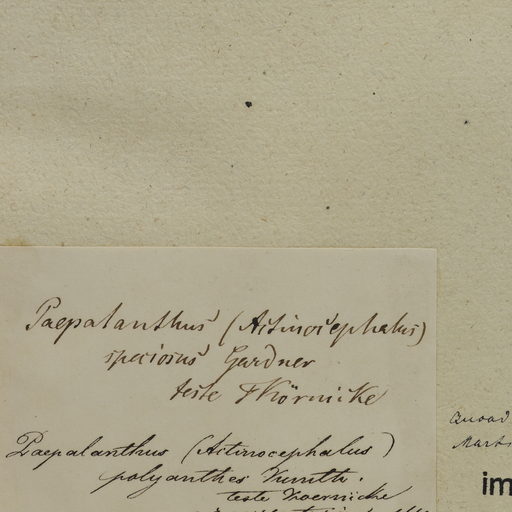 Paepalanthus (Actinocephalus)
speciosus Gardner
teste FKörnicke
Paepalanthus (Actinocephalus)
polyanthes Kunth.
teste Koernicke
Quoad
Mart
im